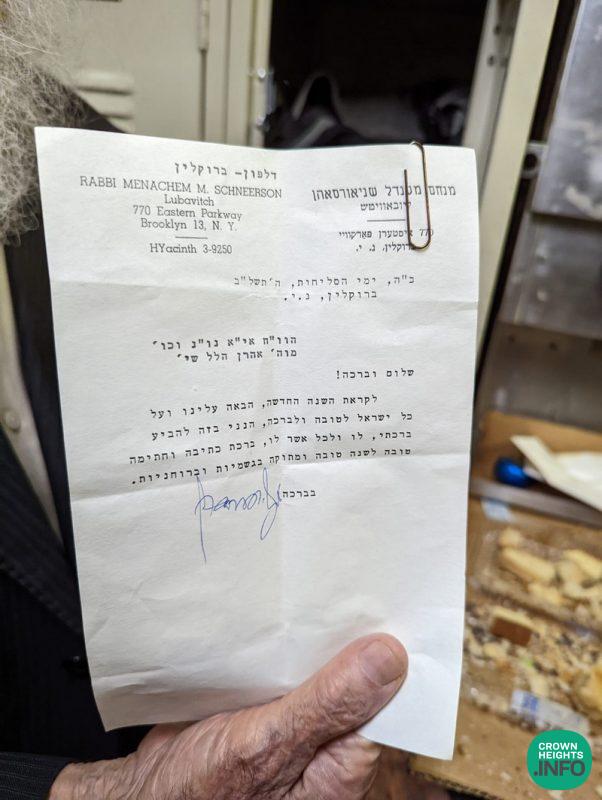 דלפון- ברוקלין
RABBI MENACHEM M. SCHNEERSON
Lubavitch
770 Eastern Parkway
Brooklyn 13, N. Y.
HYacinth 3-9250
מנחם מענדל שניאורסאהן
ליובאוויטש
770 איסטערן פארקוויי
ברוקלין, נ. י.
ב"ה, ימי הסליחות, ה'תשל"ב
ברוקלין, נ.י.
הוו"ח אי"א נו"נ וכו'
מוה' אהרן הלל שי'
שלום וברכה!
לקראת השנה החדשה, הבאה עלינו ועל
כל ישראל לטובה ולברכה, הנני בזה להביע
ברכתי, לו ולכל אשר לו, ברכת כתיבה וחתימה
טובה לשנה טובה ומתוקה בגשמיות וברוחניות.
בברכה
CROWN
HEIGHTS
.INFO